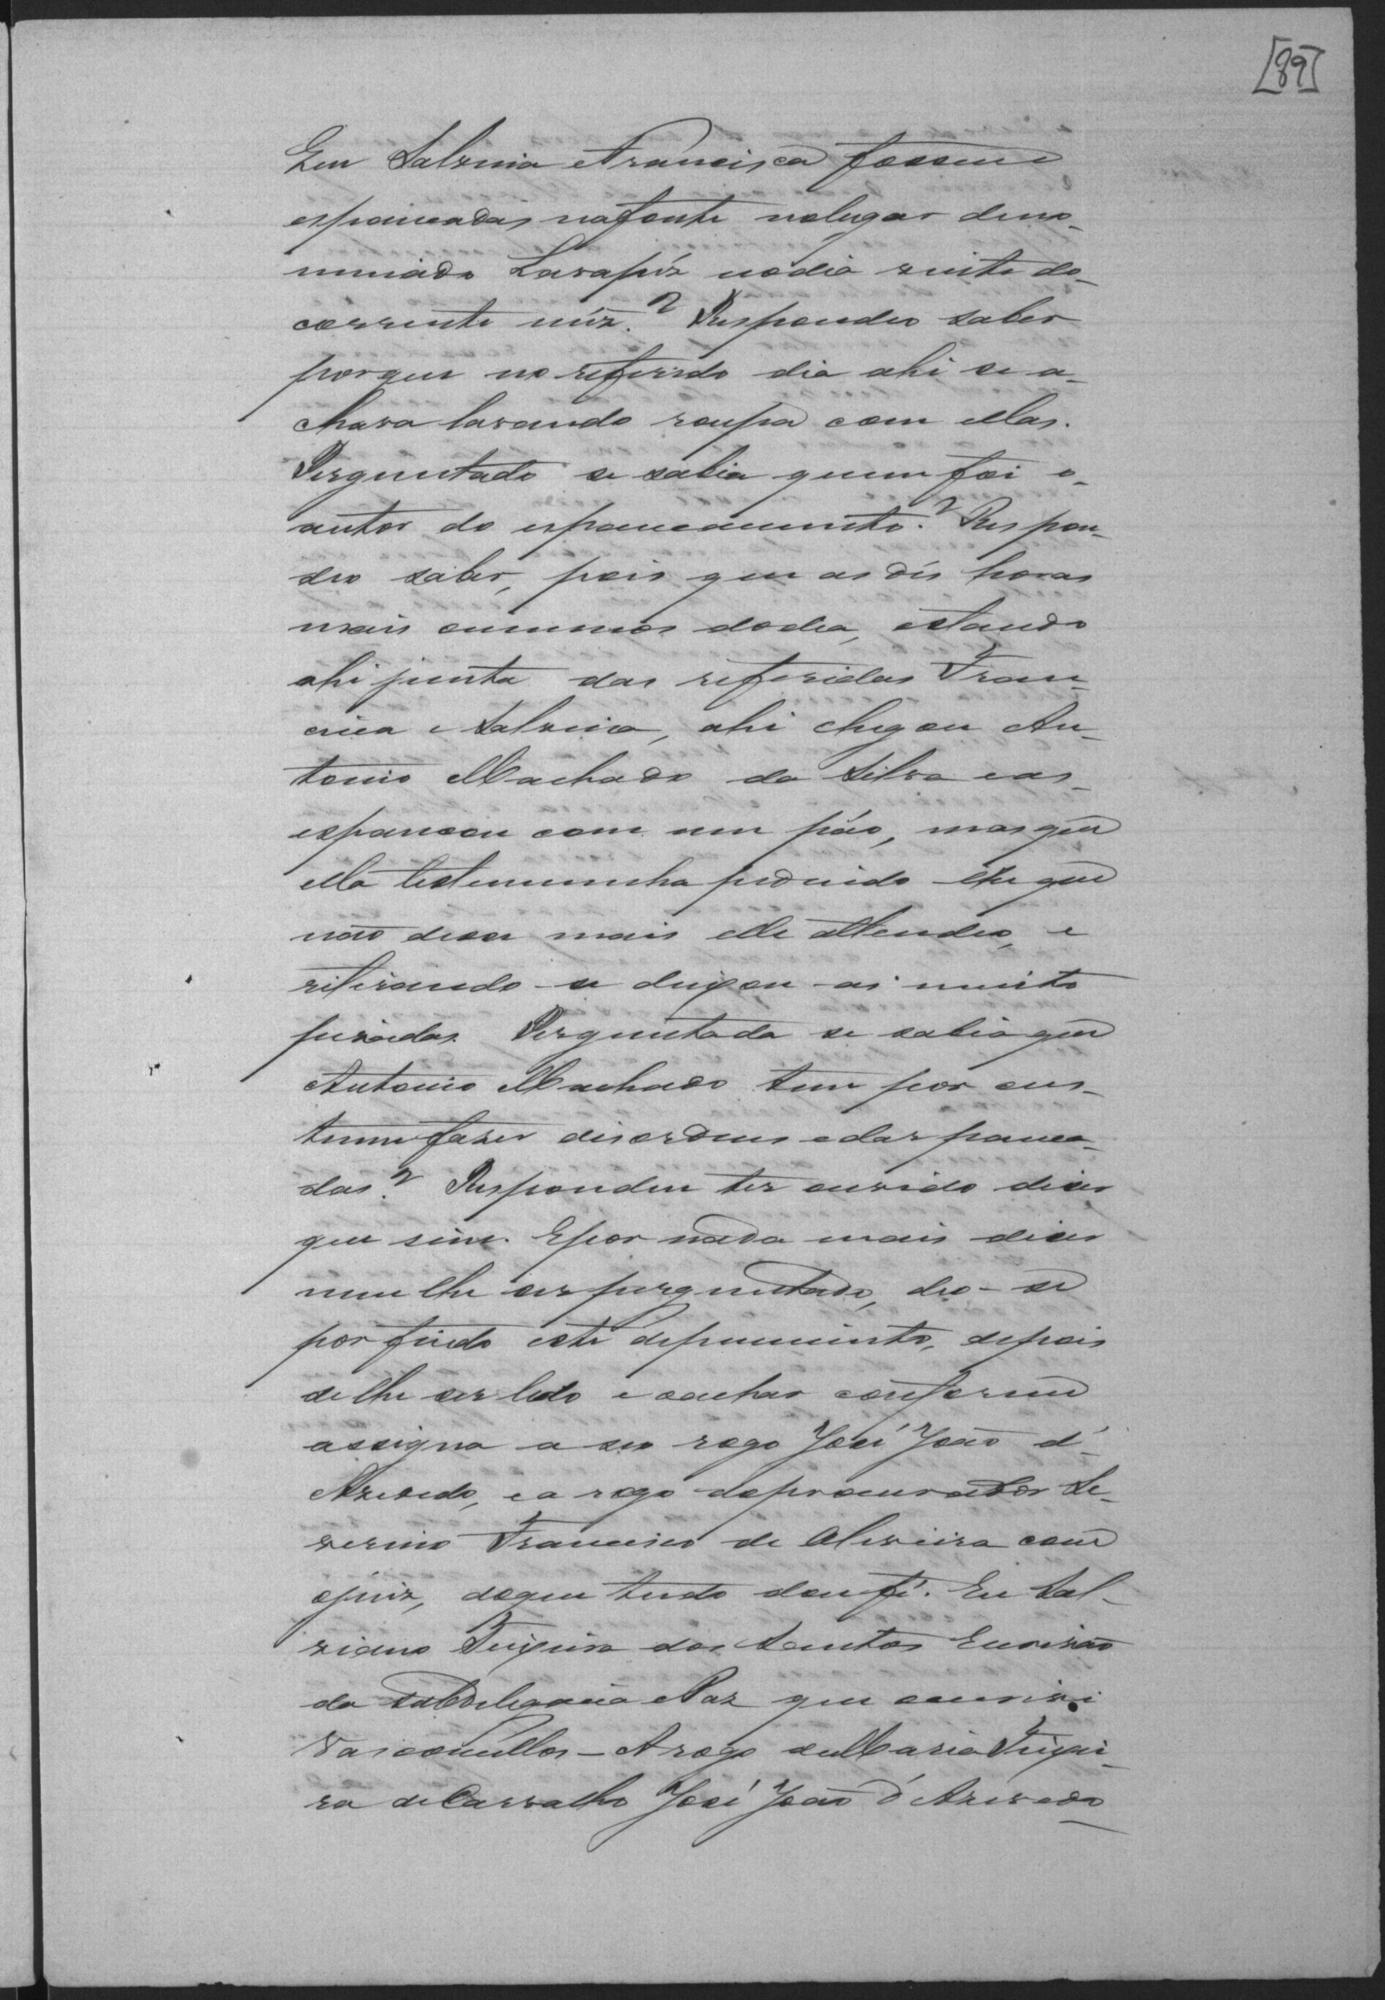 [89]
que Salvina e Francisca fossem
espancadas na fonte no lugar deno-
minado Lavapéz no dia vinte do
corrente mêz? Respondeo saber
porque no referido dia ahi se a-
chava lavando roupa com ellas.
Perguntado se sabia quem foi o
autor do espancamento? Respon-
deo saber, pois que as dés horas
mais ou menos do dia, estando
ahi junta das referidas Fran-
cisca e Salvina, ahi chegou An-
tonio Machado da Silva e as
espancou com um páo, mas que
ella testemunha pedindo lhe que
não desse mais elle attendeo, e
retirando-se deixou-as muito
feridas. Perguntada se sabia que
Antonio Machado tem por cus-
tume fazer disordens e dar panca-
das? Respondeu ter ouvido dizer
que sim. E por nada mais dizer
nem lhe ser perguntado, deo-se
por findo este depuimento, depois
de lhe ser lido e o achar conforme
assigna a seo rogo José João d'
Azevedo, e a rogo do procurador Se-
verino Francisco de Oliveira com
o juiz, do que tudo dou fé. Eu Sal-
viano Teixeira dos Santos Escrivão
da Subdelegacia e Paz que escrevi
Vasconcellos – A rogo de Maria Teixei-
ra de Carvalho José João d'Azevedo